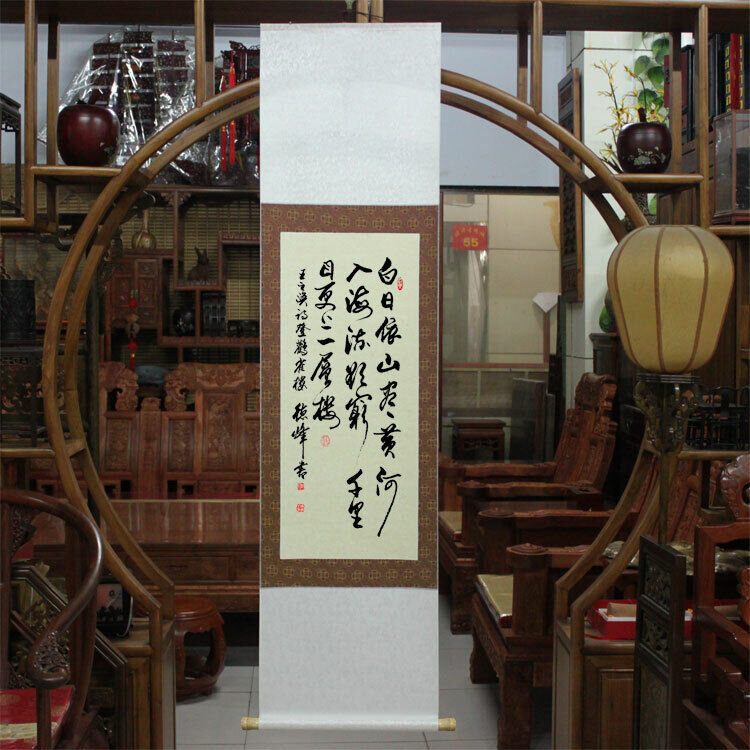 白日依山尽黄河
入海流欲窮千里
目更上一層楼
王之涣诗登鸛雀楼 德峰书
55